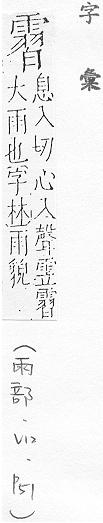 字彙
霫
息入切心入聲霫
大雨也字林雨貌
(雨部.V12.P51)